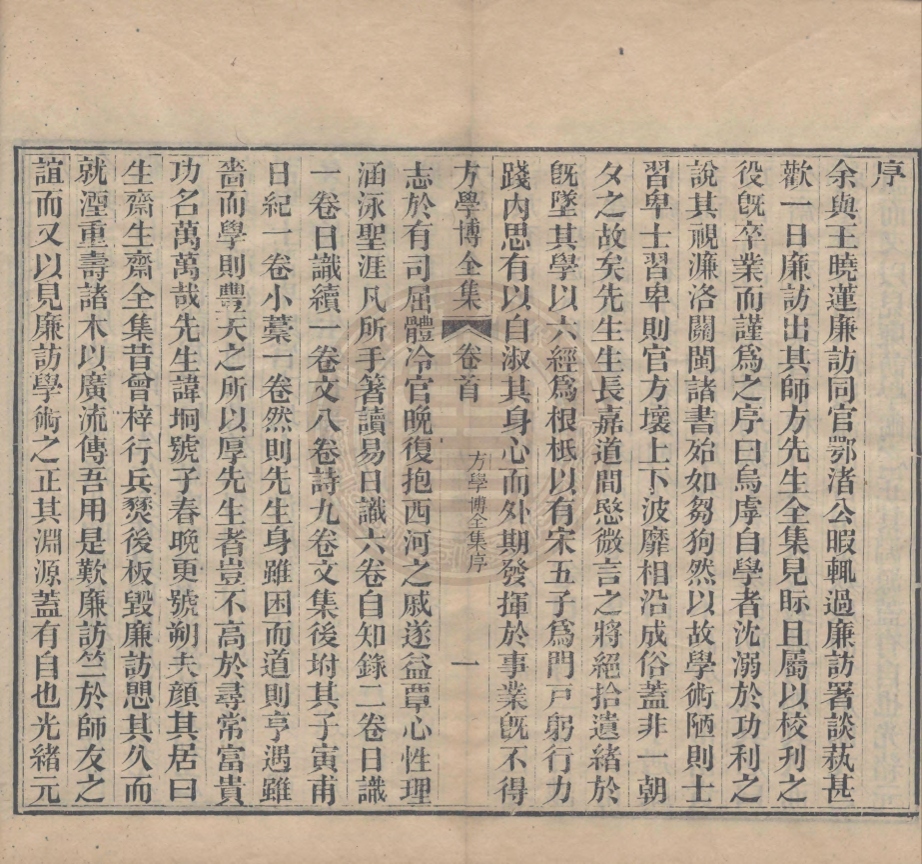 序
余與王曉蓮廉訪同官鄂渚公暇輒過廉訪署談蓺甚
歡一日廉訪出其師方先生全集見眎且屬以校刋之
役旣卒業而謹爲之序曰烏虖自學者沈溺於功利之
說其視濂洛關閩諸書殆如芻狗然以故學術陋則士
習卑士習卑則官方壞上下波靡相沿成俗蓋非一朝
夕之故矣先生生長嘉道間愍微言之將絕拾遺緒於
旣墜其學以六經爲根柢以有宋五子爲門戸躬行力
踐內思有以自淑其身心而外期發揮於事業旣不得
方學博全集
卷首
方學博全集序
一
志於有司屈體冷官晚復抱西河之戚遂益覃心性理
涵泳聖涯凡所手箸讀易日識六卷自知錄二卷日識
一卷日識續一卷文八卷詩九卷文集後坿其子寅甫
日紀一卷小藁一卷然則先生身雖困而道則亨遇雖
嗇而學則豐天之所以厚先生者豈不高於尋常富貴
功名萬萬哉先生諱坰號子春晚更號朔夫顏其居曰
生齋生齋全集昔曾梓行兵燹後板毀廉訪懇其久而
就湮重壽諸木以廣流傳吾用是歎廉訪竺於師友之
誼而又以見廉訪學術之正其淵源蓋有自也光緒元